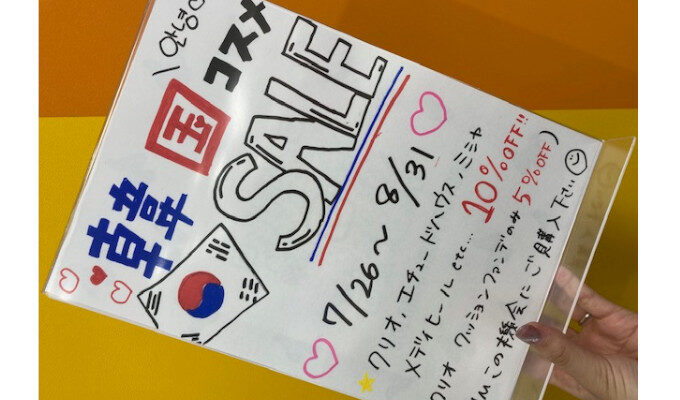 \ 안녕
韓国コスメ
SALE
7/26~8/31
★クリオ、エチュードハウス、ミシャ
メディヒール etc... 10%OFF!!
クリオ クッションファンデのみ 5%OFF)
この機会にご購入下さい